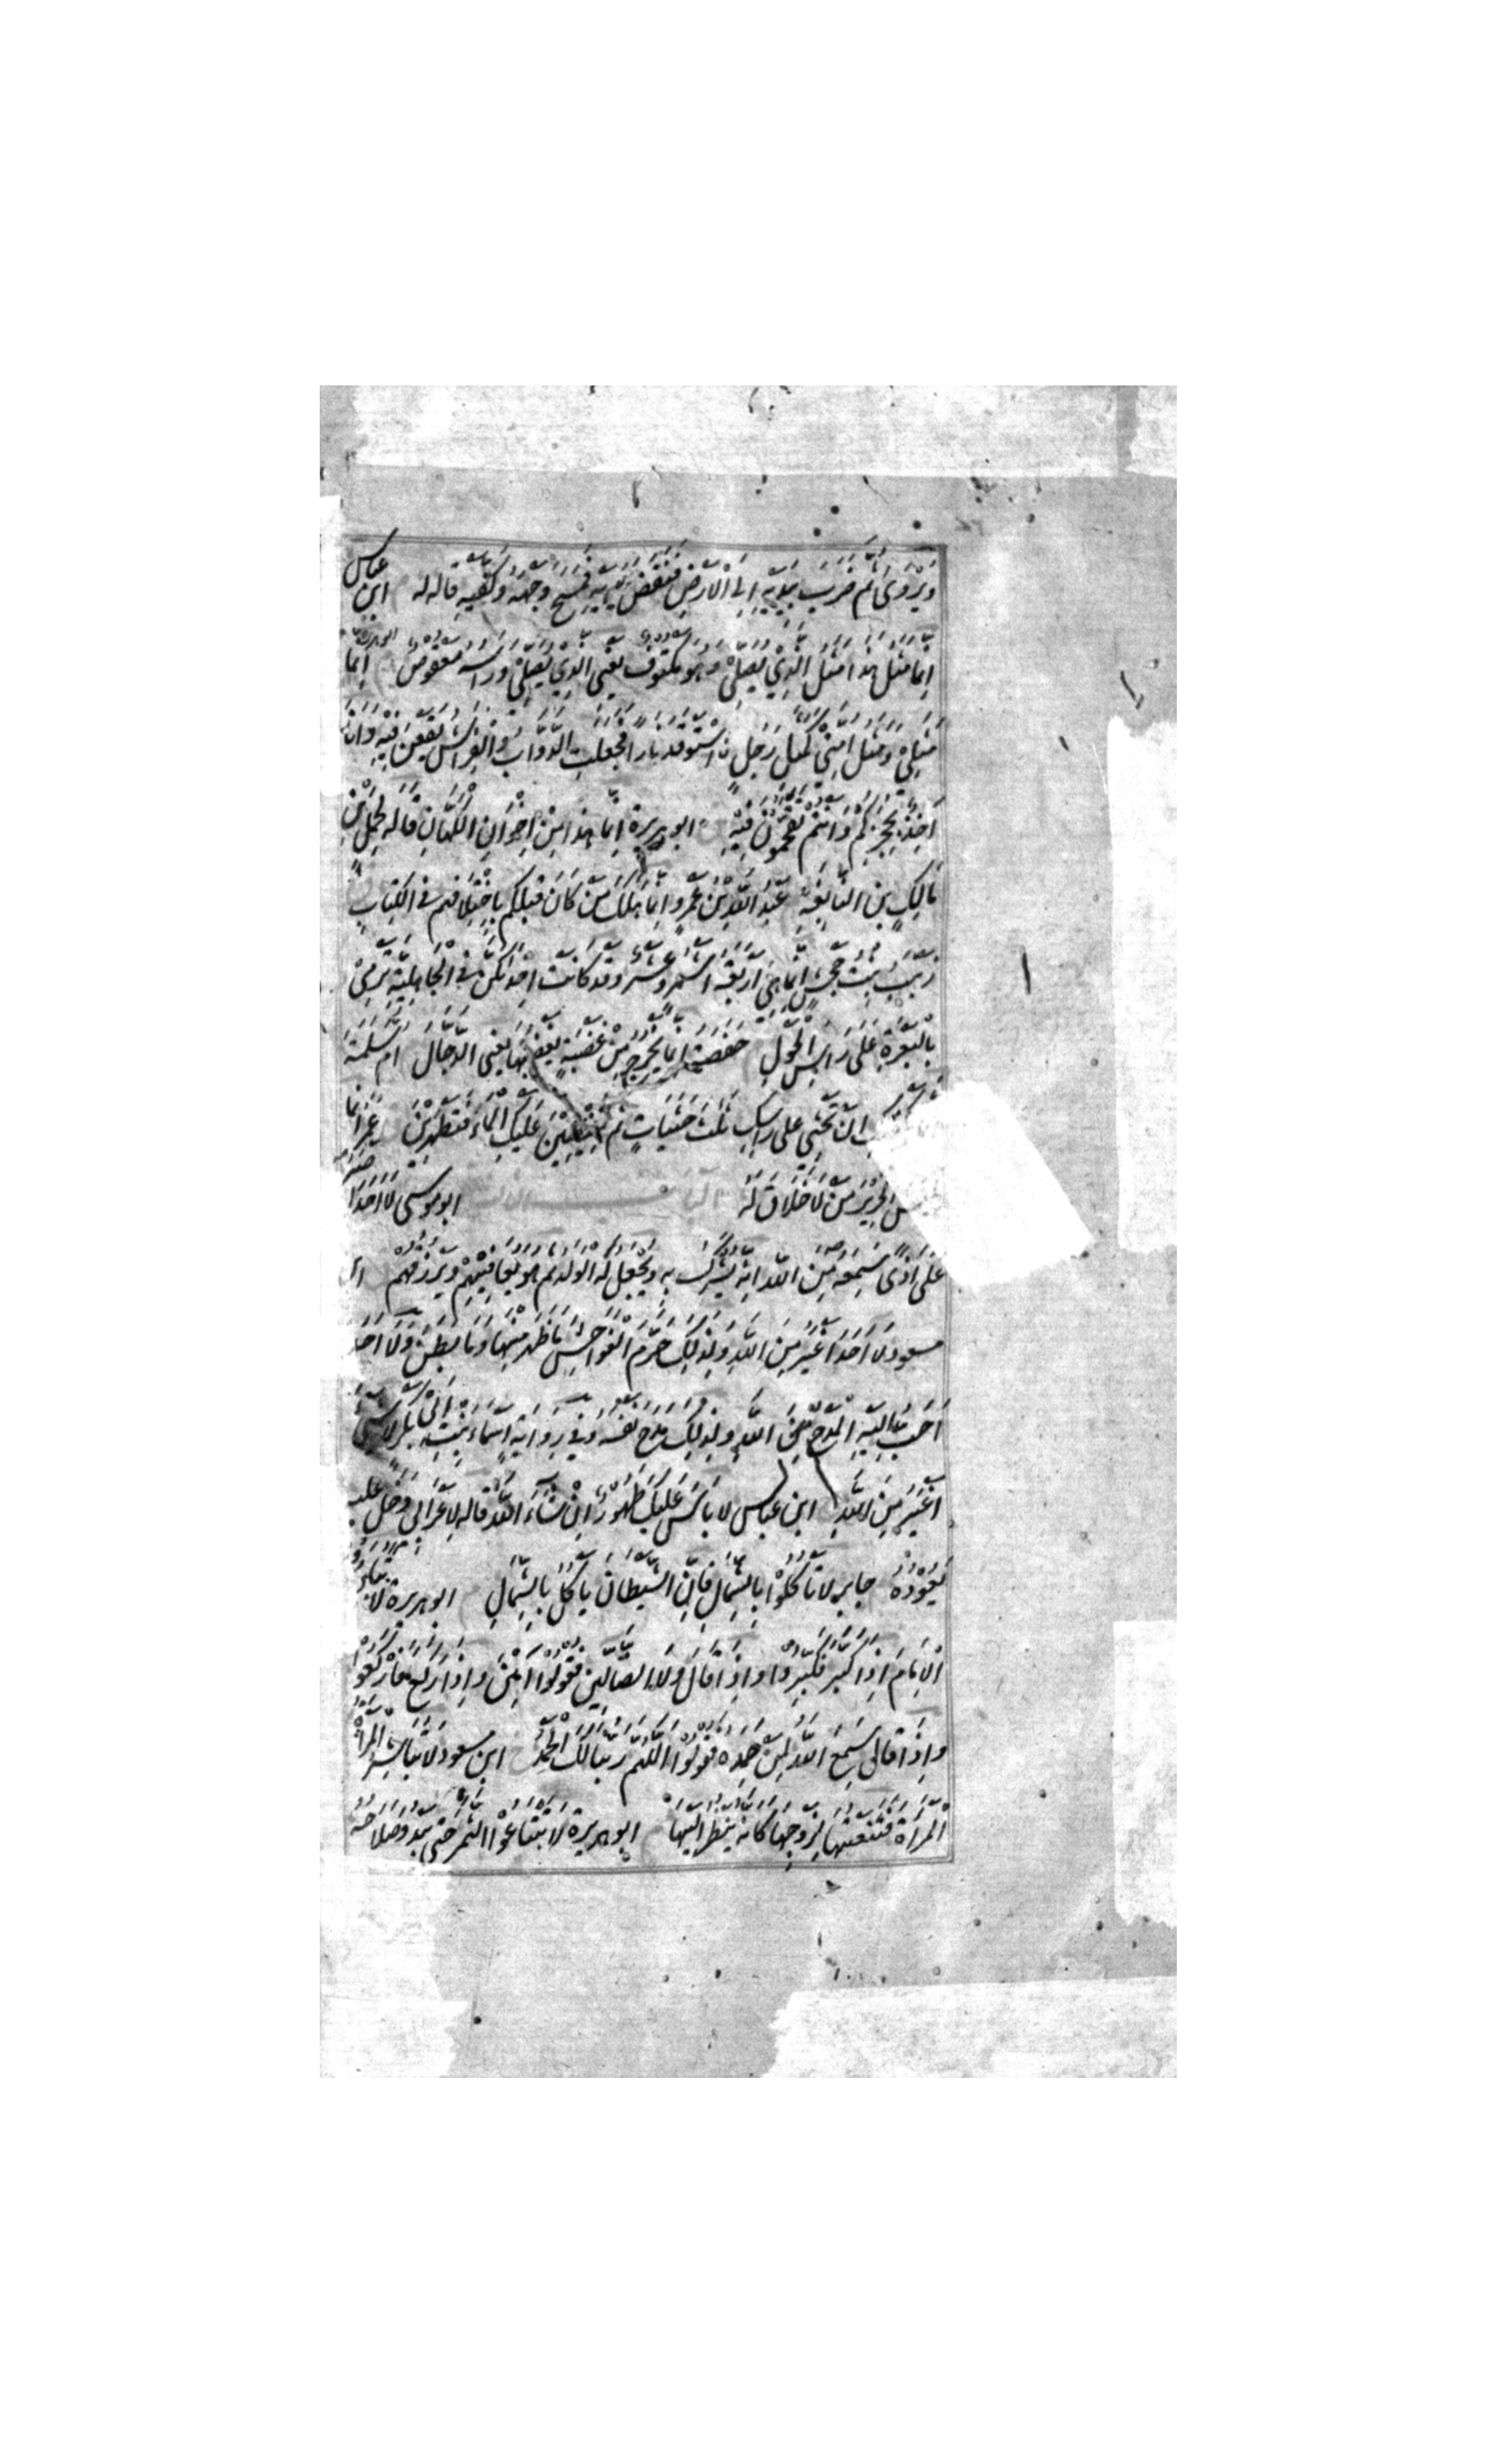 وَيُرْوَى ثُمَّ ضَرَبَ بِيَدَيْهِ إِلَى الْأَرْضِ فَنَفَضَ يَدَيْهِ فَمَسَحَ وَجْهَهُ وَكَفَّيْهِ قاله له ابن عباس
إِنَّمَا مَثَلُ هَذَا مَثَلُ الَّذِي يُصَلِّي وَهُوَ مَكْتُوفٌ يَعْنِي الَّذِي يُصَلِّي وَرَأْسُهُ مَعْقُوصٌ ابو هريرة إِنَّمَا
مَثَلِي وَمَثَلُ أُمَّتِي كَمَثَلِ رَجُلٍ اسْتَوْقَدَ نَارًا فَجَعَلَتِ الدَّوَابُّ وَالْفَرَاشُ يَقَعْنَ فِيهِ وَأَنَا
آخِذٌ بِحُجَزِكُمْ وَأَنْتُمْ تَقَحَّمُونَ فِيهِ ابو هريرة إِنَّمَا هَذَا مِنْ إِخْوَانِ الْكُهَّانِ قاله لحمل بن
مَالِكِ بْنِ النَّابِغَةِ عَبْدُ اللَّهِ بْنُ عَمْرٍو إِنَّمَا هَلَكَ مَنْ كَانَ قَبْلَكُمْ بِاخْتِلَافِهِمْ فِي الْكِتَابِ
زَيْنَبُ بِنْتُ جَحْشٍ إِنَّمَا هِيَ أَرْبَعَةُ أَشْهُرٍ وَعَشْرٌ وَقَدْ كَانَتْ إِحْدَاكُنَّ فِي الْجَاهِلِيَّةِ تَرْمِي
بِالْبَعْرَةِ عَلَى رَأْسِ الْحَوْلِ حَفْصَةُ إِنَّمَا يَخْرُجُ مِنْ غَضْبَةٍ يَغْضَبُهَا يَعْنِي الدَّجَّالَ أُمُّ سَلَمَةَ
أَنْ تَحْثِي عَلَى رَأْسِكِ ثَلَثَ حَثَيَاتٍ ثُمَّ تُفِيضِينَ عَلَيْكِ الْمَاءَ فَتَطْهُرِينَ عُمَرُ إِنَّمَا
الْحَرِيرَ مَنْ لَا خَلَاقَ لَهُ ابو موسى لَا أَحَدَ
عَلَى أَذًى سَمِعَهُ مِنَ اللَّهِ إِنَّهُ يُشْرَكُ بِهِ وَيُجْعَلُ لَهُ الْوَلَدُ ثُمَّ هُوَ يُعَافِيهِمْ وَيَرْزُقُهُمْ
مسعود لَا أَحَدَ أَغْيَرُ مِنَ اللَّهِ وَلِذَلِكَ حَرَّمَ الْفَوَاحِشَ مَا ظَهَرَ مِنْهَا وَمَا بَطَنَ وَلَا أَحَدَ
أَحَبُّ إِلَيْهِ الْمَدْحُ مِنَ اللَّهِ وَلِذَلِكَ مَدَحَ نَفْسَهُ وَفِي رِوَايَةِ أَسْمَاءَ بِنْتِ أَبِي بَكْرٍ لَا شَيْءَ
أَغْيَرُ مِنَ اللَّهِ ابن عباس لَا بَأْسَ عَلَيْكَ طَهُورٌ إِنْ شَاءَ اللَّهُ قاله لِأَعْرَابِيٍّ دَخَلَ عليه
يَعُودُهُ جابر لَا تَأْكُلُوا بِالشِّمَالِ فَإِنَّ الشَّيْطَانَ يَأْكُلُ بِالشِّمَالِ ابو هريرة لَا تُبَادِرُوا
الْإِمَامَ إِذَا كَبَّرَ فَكَبِّرُوا وَإِذَا قَالَ وَلَا الضَّالِّينَ فَقُولُوا آمِينَ وَإِذَا رَكَعَ فَارْكَعُوا
وَإِذَا قَالَ سَمِعَ اللَّهُ لِمَنْ حَمِدَهُ فَقُولُوا اللَّهُمَّ رَبَّنَا لَكَ الْحَمْدُ ابن مسعود لَا تُبَاشِرُ الْمَرْأَةُ
الْمَرْأَةَ فَتَنْعَتَهَا لِزَوْجِهَا كَأَنَّهُ يَنْظُرُ إِلَيْهَا ابو هريرة لَا تَبْتَاعُوا الثَّمَرَ حَتَّى يَبْدُوَ صَلَاحُهُ